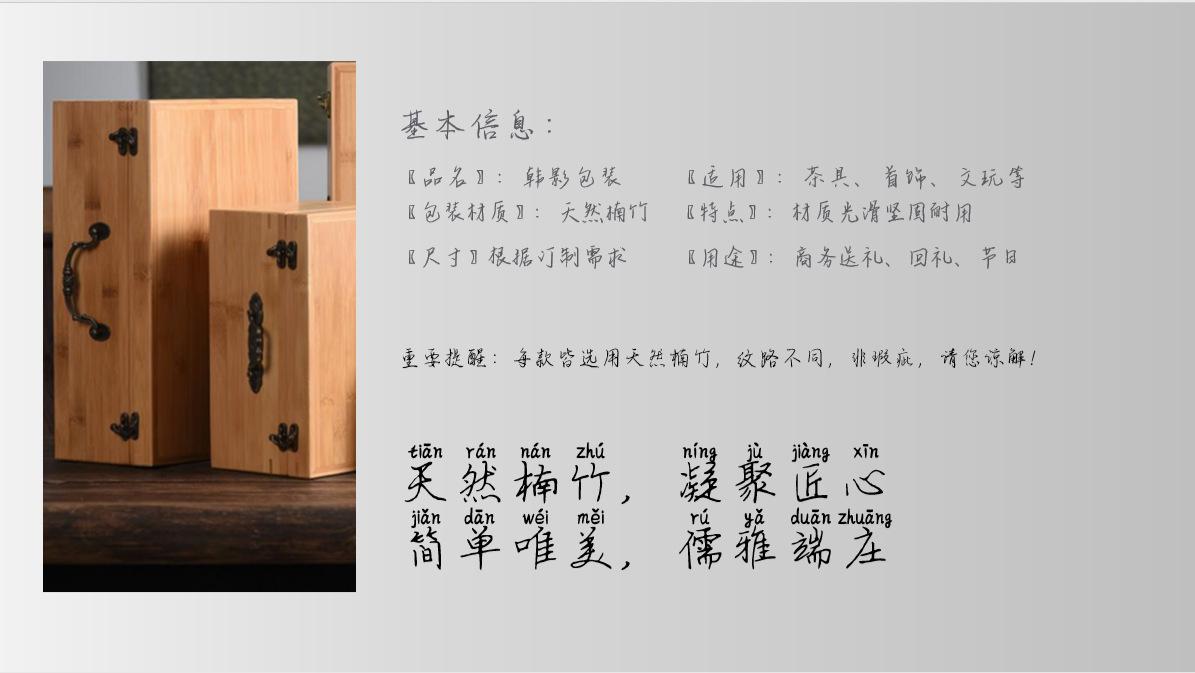 基本信息：
〖品名〗： 韩影包装 〖适用〗： 茶具、首饰、文玩等
〖包装材质〗： 天然楠竹 〖特点〗： 材质光滑坚固耐用
〖尺寸〗根据订制需求 〖用途〗： 商务送礼、回礼、节日
重要提醒：每款皆选用天然楠竹，纹路不同，非瑕疵，请您谅解！
tiān rán nán zhú níng jù jiàng xīn
天然楠竹，凝聚匠心
jiǎn dān wéi měi rú yǎ duān zhuāng
简单唯美，儒雅端庄